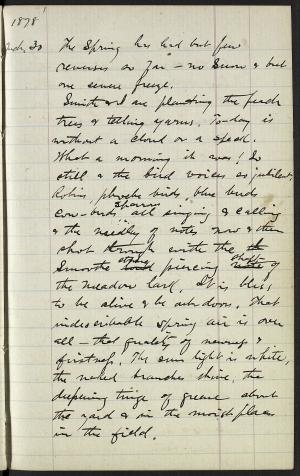 1878
March 30 The Spring has had but few
reverses so far - no Snow & but
one severe freeze.
Smith & I are planting the peach
trees & telling yarns. Today is
without a cloud or a speck.
What a morning it was! So
still & the bird voices so jubilant,
Robins, phoebe birds, blue birds
sparrows
cow-birds, all singing & calling
& the medley of notes now & then
shot through with the
Smooth strong piercing shaft of
the meadow lark. It is bliss
to be alive & be out doors. That
indescribable Spring air is over
all - that quality of newness &
firstness. The sun light is white,
the naked branches shine, the
deepening tinge of green about
the yard & in the moist places
in the field.